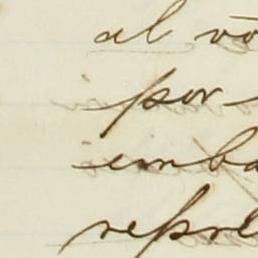 al vo
por
emba
repre